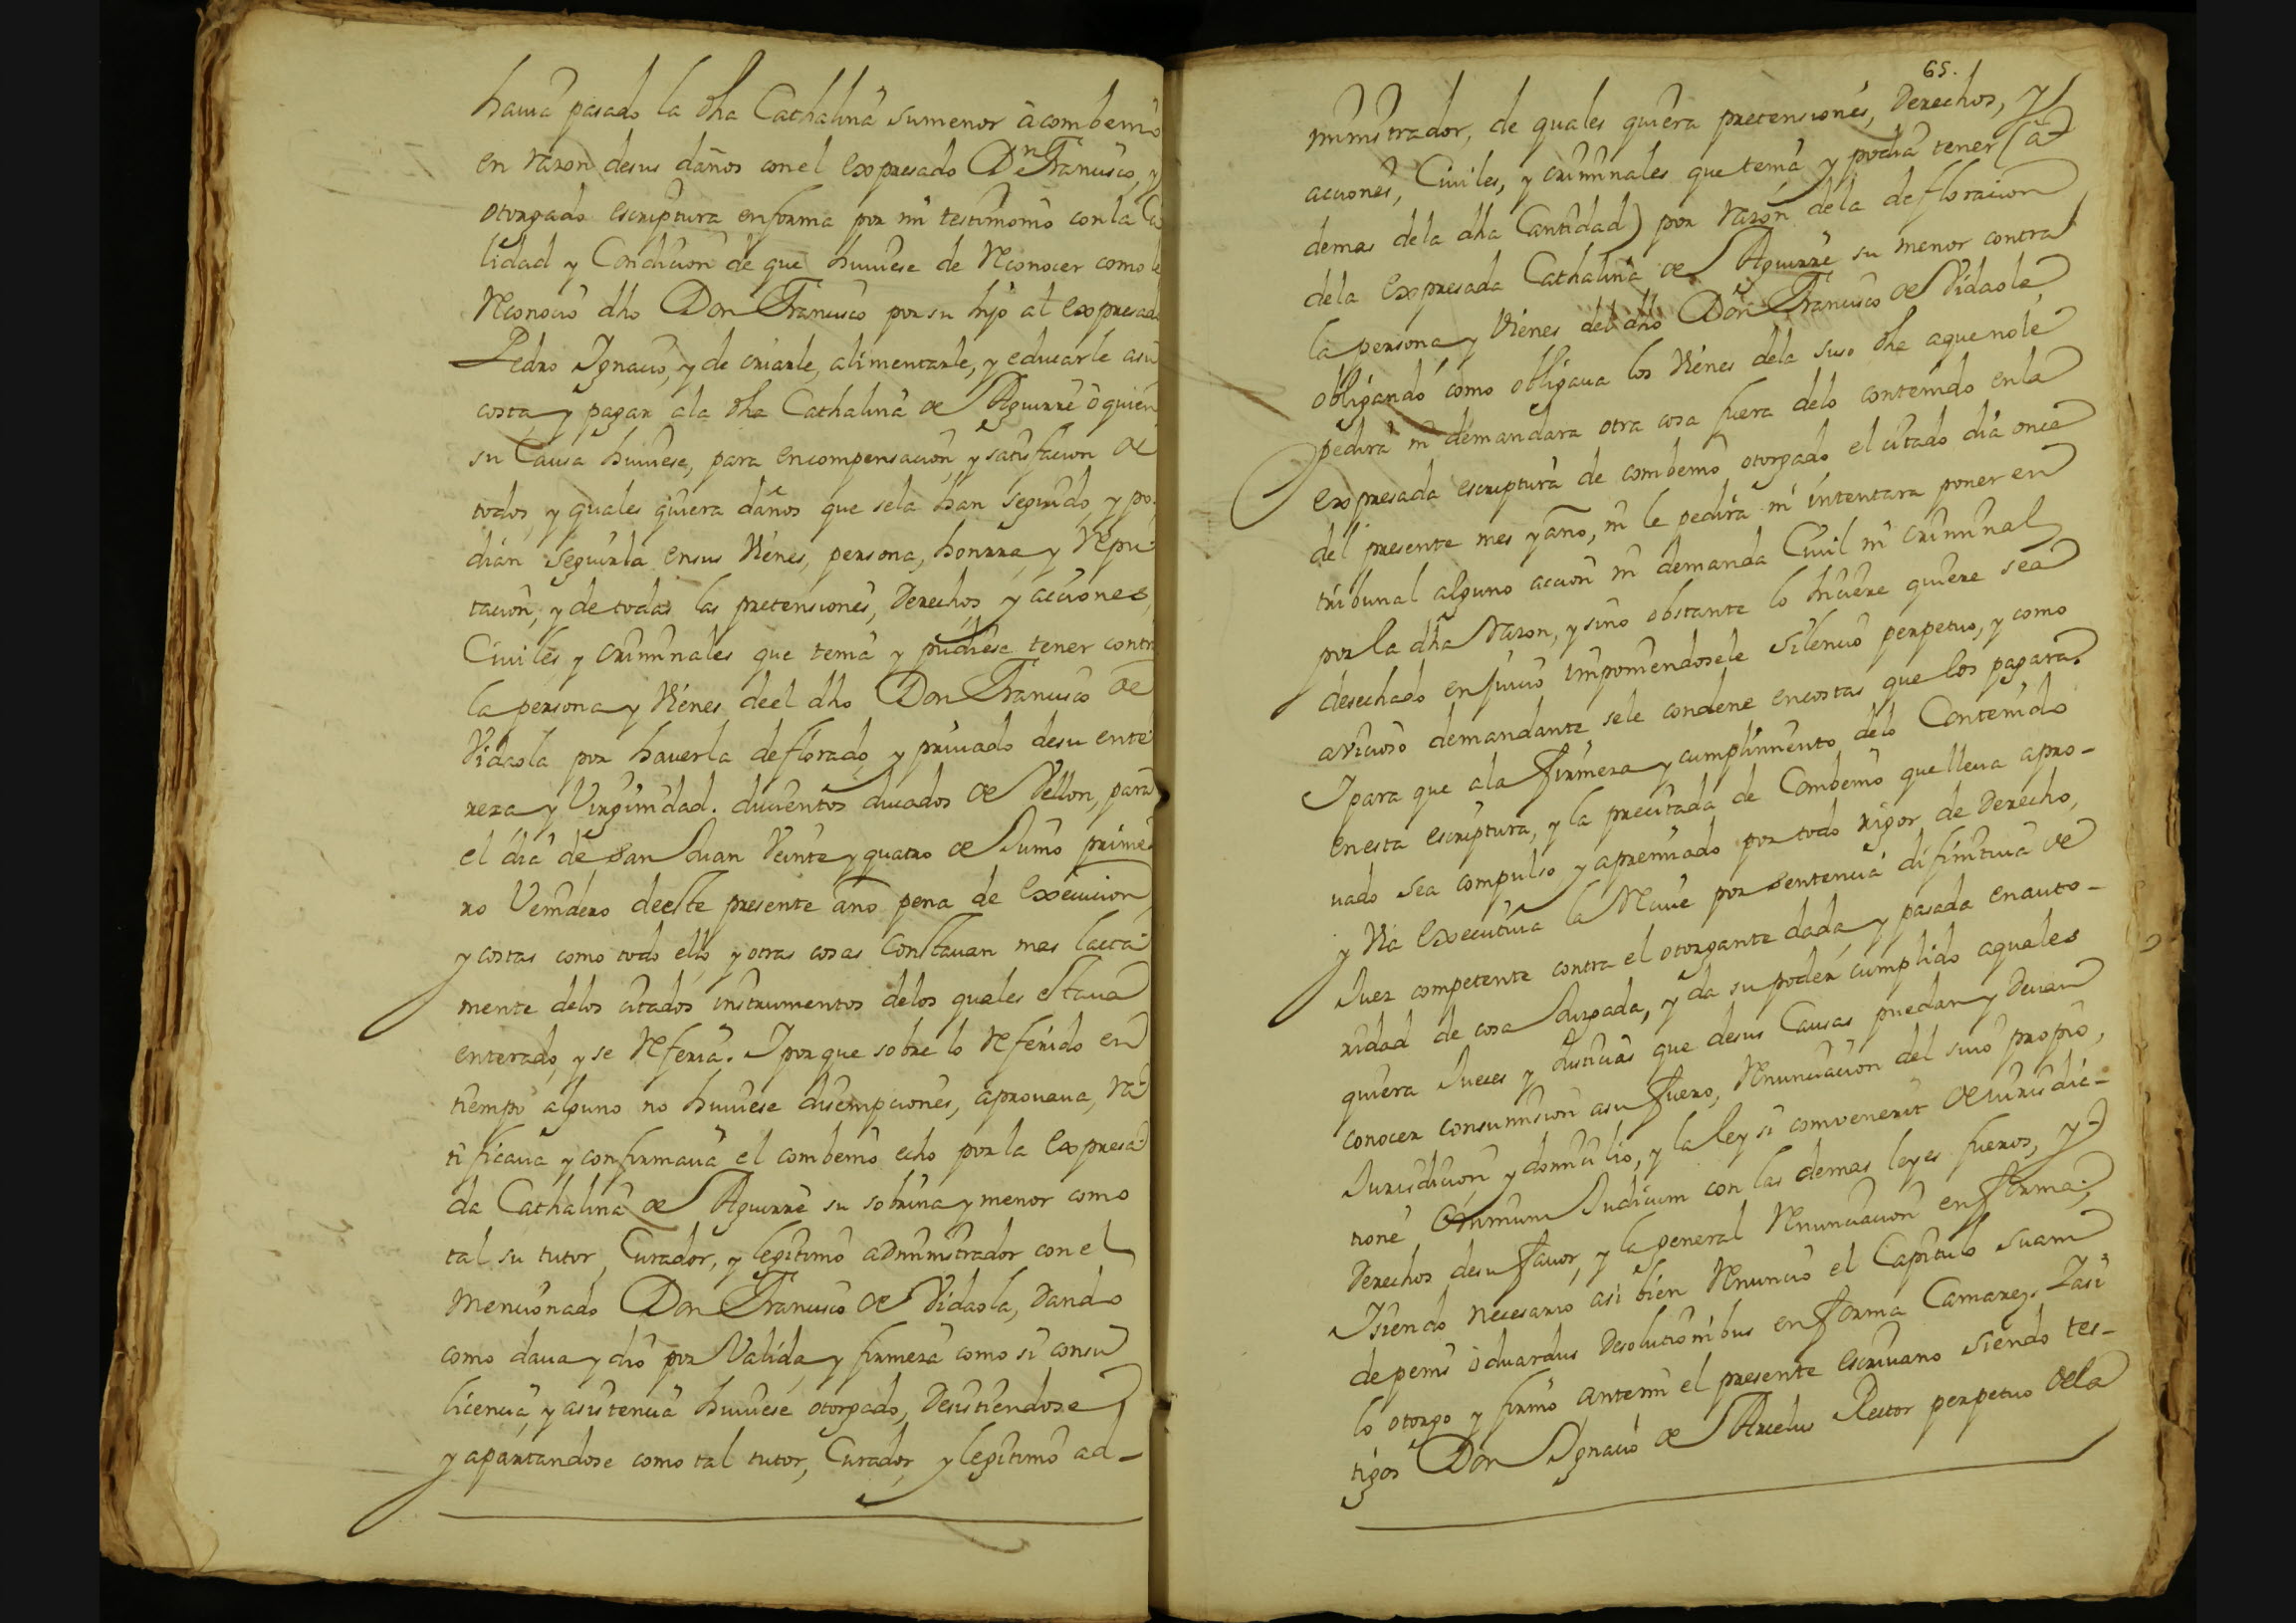 hauia pasado la dha Cathalina su menor à combenio
en razon de sus daños con el expresado Dn Francisco, y
otorgado escriptura en forma por mi testimonio con la Ca
lidad y Condicion de que huuiese de Reconocer como le
Reconocio dho Don Francisco por su hijo al expresado
Pedro Ignacio, y de criarle, alimentarle, y educarle asu
costa, y pagar ala dha Cathalina de Aguirre ò quien
su Causa huuiese, para en compensacion, y satisfacion de
todos, y quales quiera daños que sela han seguido, y po-
dian seguirla en sus Vienes, persona, honrra, y Repu-
tacion, y de todas las pretensiones, Derechos, y acciones,
Ciuiles, y criminales que tenia y pudiese tener contra
la persona y Vienes de el dho Don Francisco de
Vidaola por hauerla deflorado, y priuado de su ente-
reza y Virginidad. ducientos ducados de Vellon, para
el dia de San Juan Veinte y quatro de Junio prime
ro Venidero de este presente año pena de execucion
y costas como todo ello, y otras cosas constauan mas larga-
mente delos citados instrumentos delos quales estaua
enterado, y se Referia. Y por que sobre lo Referido en
tiempo alguno no huuiese disempciones, aprouaua, Ra-
tificaua y confirmaua el combenio echo por la expresa-
da Cathalina de Aguirre su sobrina y menor como
tal su tutor, Curador, y legitimo administrador con el
mencionado Don Francisco de Vidaola, Dando
como daua y dio por Valida, y firmeza como si con su
licencia, y asistencia huuiese otorgado, Desistiendose
y apartandose como tal tutor, Curador, y legitimo ad-
65.
ministrador, de quales quiera pretensiones, Derechos, y
acciones, Ciuiles, y criminales que tenia y podia tener (a-
demas dela dha Cantidad) por razon dela defloracion
dela expresada Cathalina de Aguirre su menor contra
la persona y Vienes del dho Don Francisco de Vidaola,
obligando como obligaua los Vienes dela suso dha aque nole
pedira ni demandara otra cosa fuera delo contenido enla
expresada escriptura de combenio otorgado el citado dia once
del presente mes y año, ni le pedira ni intentara poner en
tribunal alguno accion ni demanda Ciuil ni criminal
por la dha Razon, y sino obstante lo hiciere quiere sea
desechado en juicio imponiendosele silencio perpetuo, y como
a vicioso demandante sele condene en costas que los pagara.
Y para que ala firmeza y cumplimiento delo Contenido
en esta escriptura, y la precitada de Combenio que lleua apro-
uado sea compulso y apremiado por todo rigor de Derecho,
y Via executiua la Reciue por sentencia difinitiua de
Juez competente contra el otorgante dada, y pasada en auto-
ridad de cosa Juzgada, y da su poder cumplido aquales
quiera Jueces y Justicias que de sus Causas puedan y Deuan
conocer con sumision asu fuero, Renunciacion del suio propio,
Jurisdicion, y domicilio, y la ley si convenerit de iurisdic-
tione Omnium Judicum con las demas leyes fueros, y
Derechos de su fauor, y la general Renunciacion en forma;
Y siendo necesario asi bien Renuncio el Capitulo suam
de penis oduardus Desolutionibus en forma Camarez. Y asi
lo otorgo y firmo ante mi el presente escriuano siendo tes-
tigos Don Ignacio de Arcelus Rector perpetuo dela